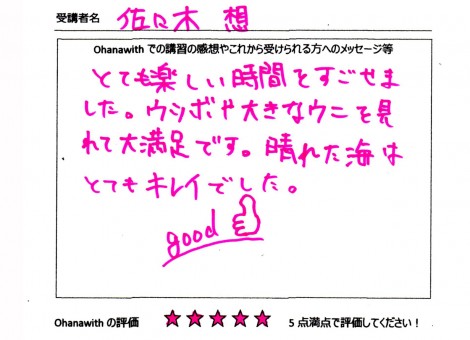 受講者名 佐々木 想
Ohanawith での講習の感想やこれから受けられる方へのメッセージ等
とても楽しい時間をすごせま
した。ウツボや大きなウニを見
れて大満足です。晴れた海は
とてもキレイでした。
good
Ohanawith の評価 ★★★★★ 5 点満点で評価してください!